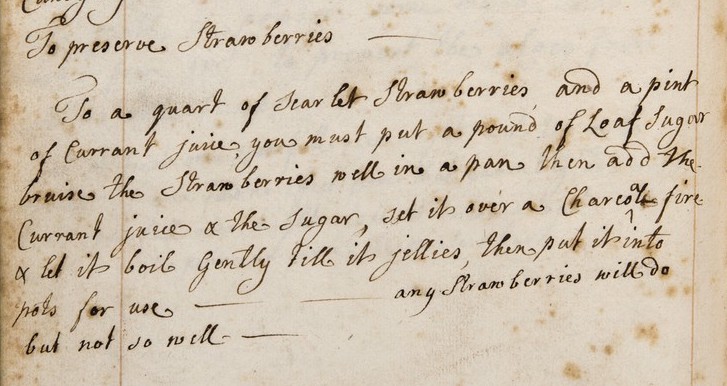 To preserve Strawberries
To a quart of Scarlet Strawberries, and a pint
of Currant juice, you must put a pound of Loaf Sugar
bruise the Strawberries well in a pan then add the
Currant juice & the Sugar, set it over a Charcoal fire
& let it boil Gently till it jellies, then put it into
pots for use — — any Strawberries will do
but not so well —